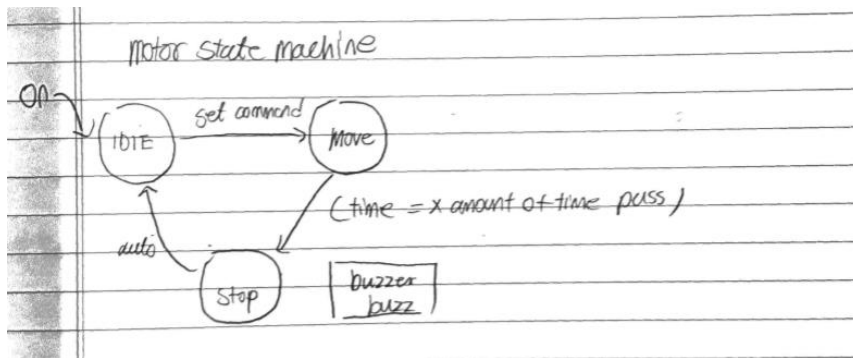 Motor state machine
On
set command
IDlE
Move
(time = x amount of time pass)
auto
Stop
buzzer
buzz